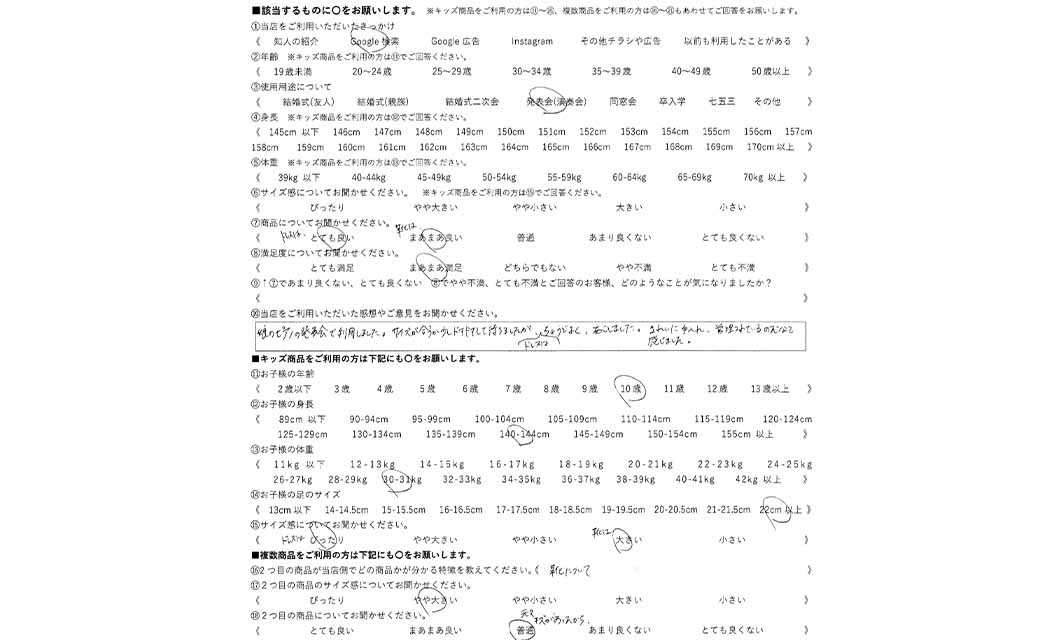 ■該当するものに〇をお願いします。 ※キッズ商品をご利用の方は⑪～⑮、複数商品をご利用の方は⑯～⑳もあわせてご回答をお願いします。
①当店をご利用いただいたきっかけ
《 知人の紹介 Google 検索 Google 広告 Instagram その他チラシや広告 以前も利用したことがある 》
②年齢 ※キッズ商品をご利用の方は⑪でご回答ください。
《 19歳未満 20～24歳 25～29歳 30～34歳 35～39歳 40～49歳 50歳以上 》
③使用用途について
《 結婚式(友人) 結婚式(親族) 結婚式二次会 発表会(演奏会) 同窓会 卒入学 七五三 その他 》
④身長 ※キッズ商品をご利用の方は⑫でご回答ください。
《 145cm 以下 146cm 147cm 148cm 149cm 150cm 151cm 152cm 153cm 154cm 155cm 156cm 157cm
158cm 159cm 160cm 161cm 162cm 163cm 164cm 165cm 166cm 167cm 168cm 169cm 170cm 以上 》
⑤体重 ※キッズ商品をご利用の方は⑬でご回答ください。
《 39kg 以下 40-44kg 45-49kg 50-54kg 55-59kg 60-64kg 65-69kg 70kg 以上 》
⑥サイズ感についてお聞かせください。 ※キッズ商品をご利用の方は⑮でご回答ください。
《 ぴったり やや大きい やや小さい 大きい 小さい 》
⑦商品についてお聞かせください。
《 ドレスは、 とても良い 靴は まあまあ良い 普通 あまり良くない とても良くない 》
⑧満足度についてお聞かせください。
《 とても満足 まあまあ満足 どちらでもない やや不満 とても不満 》
⑨↑⑦であまり良くない、とても良くない ⑧でやや不満、とても不満とご回答のお客様、どのようなことが気になりましたか？
《 》
⑩当店をご利用いただいた感想やご意見をお聞かせください。
娘のピアノの発表会で利用しました。サイズが合うか少しドキドキして待ちましたが、ちょうどよく、安心しました。きれいに手入れ、管理されているのだなと
ドレスは 感じました。
■キッズ商品をご利用の方は下記にも〇をお願いします。
⑪お子様の年齢
《 2歳以下 3歳 4歳 5歳 6歳 7歳 8歳 9歳 10歳 11歳 12歳 13歳以上 》
⑫お子様の身長
《 89cm 以下 90-94cm 95-99cm 100-104cm 105-109cm 110-114cm 115-119cm 120-124cm
125-129cm 130-134cm 135-139cm 140-144cm 145-149cm 150-154cm 155cm 以上 》
⑬お子様の体重
《 11kg 以下 12-13kg 14-15kg 16-17kg 18-19kg 20-21kg 22-23kg 24-25kg
26-27kg 28-29kg 30-31kg 32-33kg 34-35kg 36-37kg 38-39kg 40-41kg 42kg 以上 》
⑭お子様の足のサイズ
《 13cm以下 14-14.5cm 15-15.5cm 16-16.5cm 17-17.5cm 18-18.5cm 19-19.5cm 20-20.5cm 21-21.5cm 22cm 以上 》
⑮サイズ感についてお聞かせください。
《 ドレスは ぴったり やや大きい やや小さい 靴は 大きい 小さい 》
■複数商品をご利用の方は下記にも〇をお願いします。
⑯2つ目の商品が当店側でどの商品かが分かる特徴を教えてください。《 靴について 》
⑰2つ目の商品のサイズ感についてお聞かせください。
《 ぴったり やや大きい やや小さい 大きい 小さい 》
⑱2つ目の商品についてお聞かせください。
《 とても良い まあまあ良い 普通 あまり良くない とても良くない 》